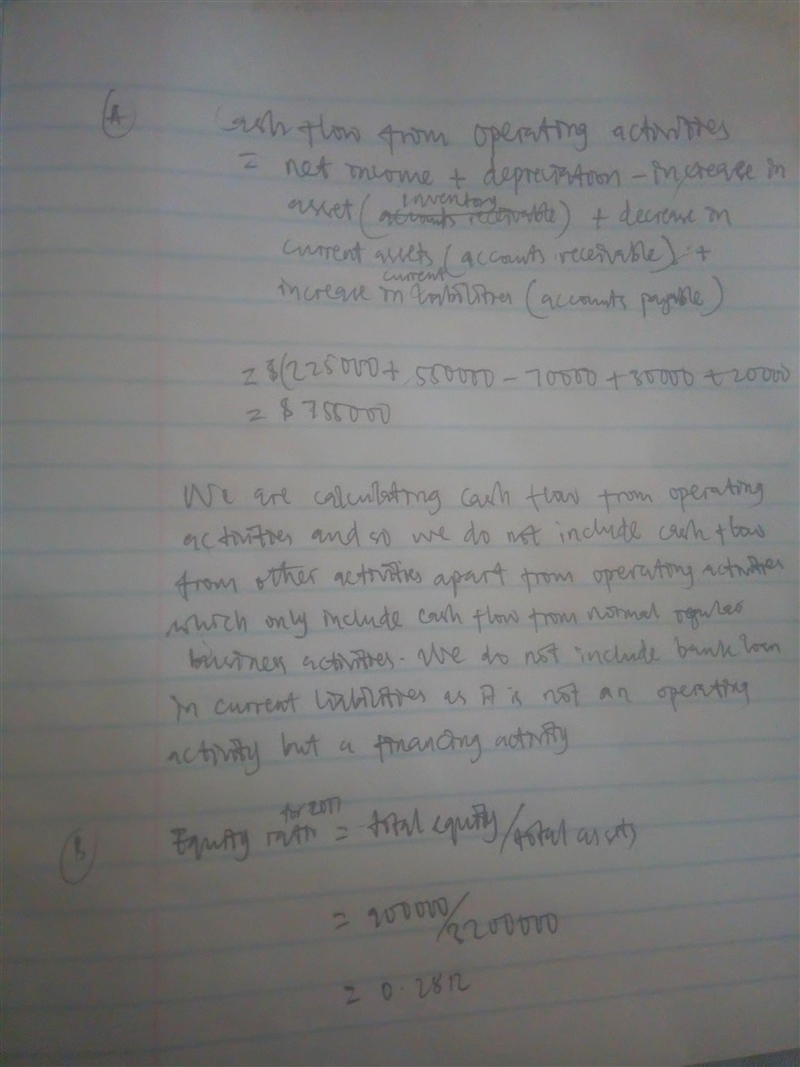 A Cash flow from operating activities
= net income + depreciation - increase in
inventory
asset (accounts receivable) + decrease in
current assets (accounts receivable) +
current
increase in liabilities (accounts payable)
= $(225000 + 550000 - 70000 + 30000 + 20000
= $755000
We are calculating cash flow from operating
activities and so we do not include cash flow
from other activities apart from operating activities
which only include cash flow from normal regular
business activities. We do not include bank loan
in current liabilities as it is not an operating
activity but a financing activity
for 2011
B Equity ratio = total equity/total assets
= 900000/3200000
= 0.2812